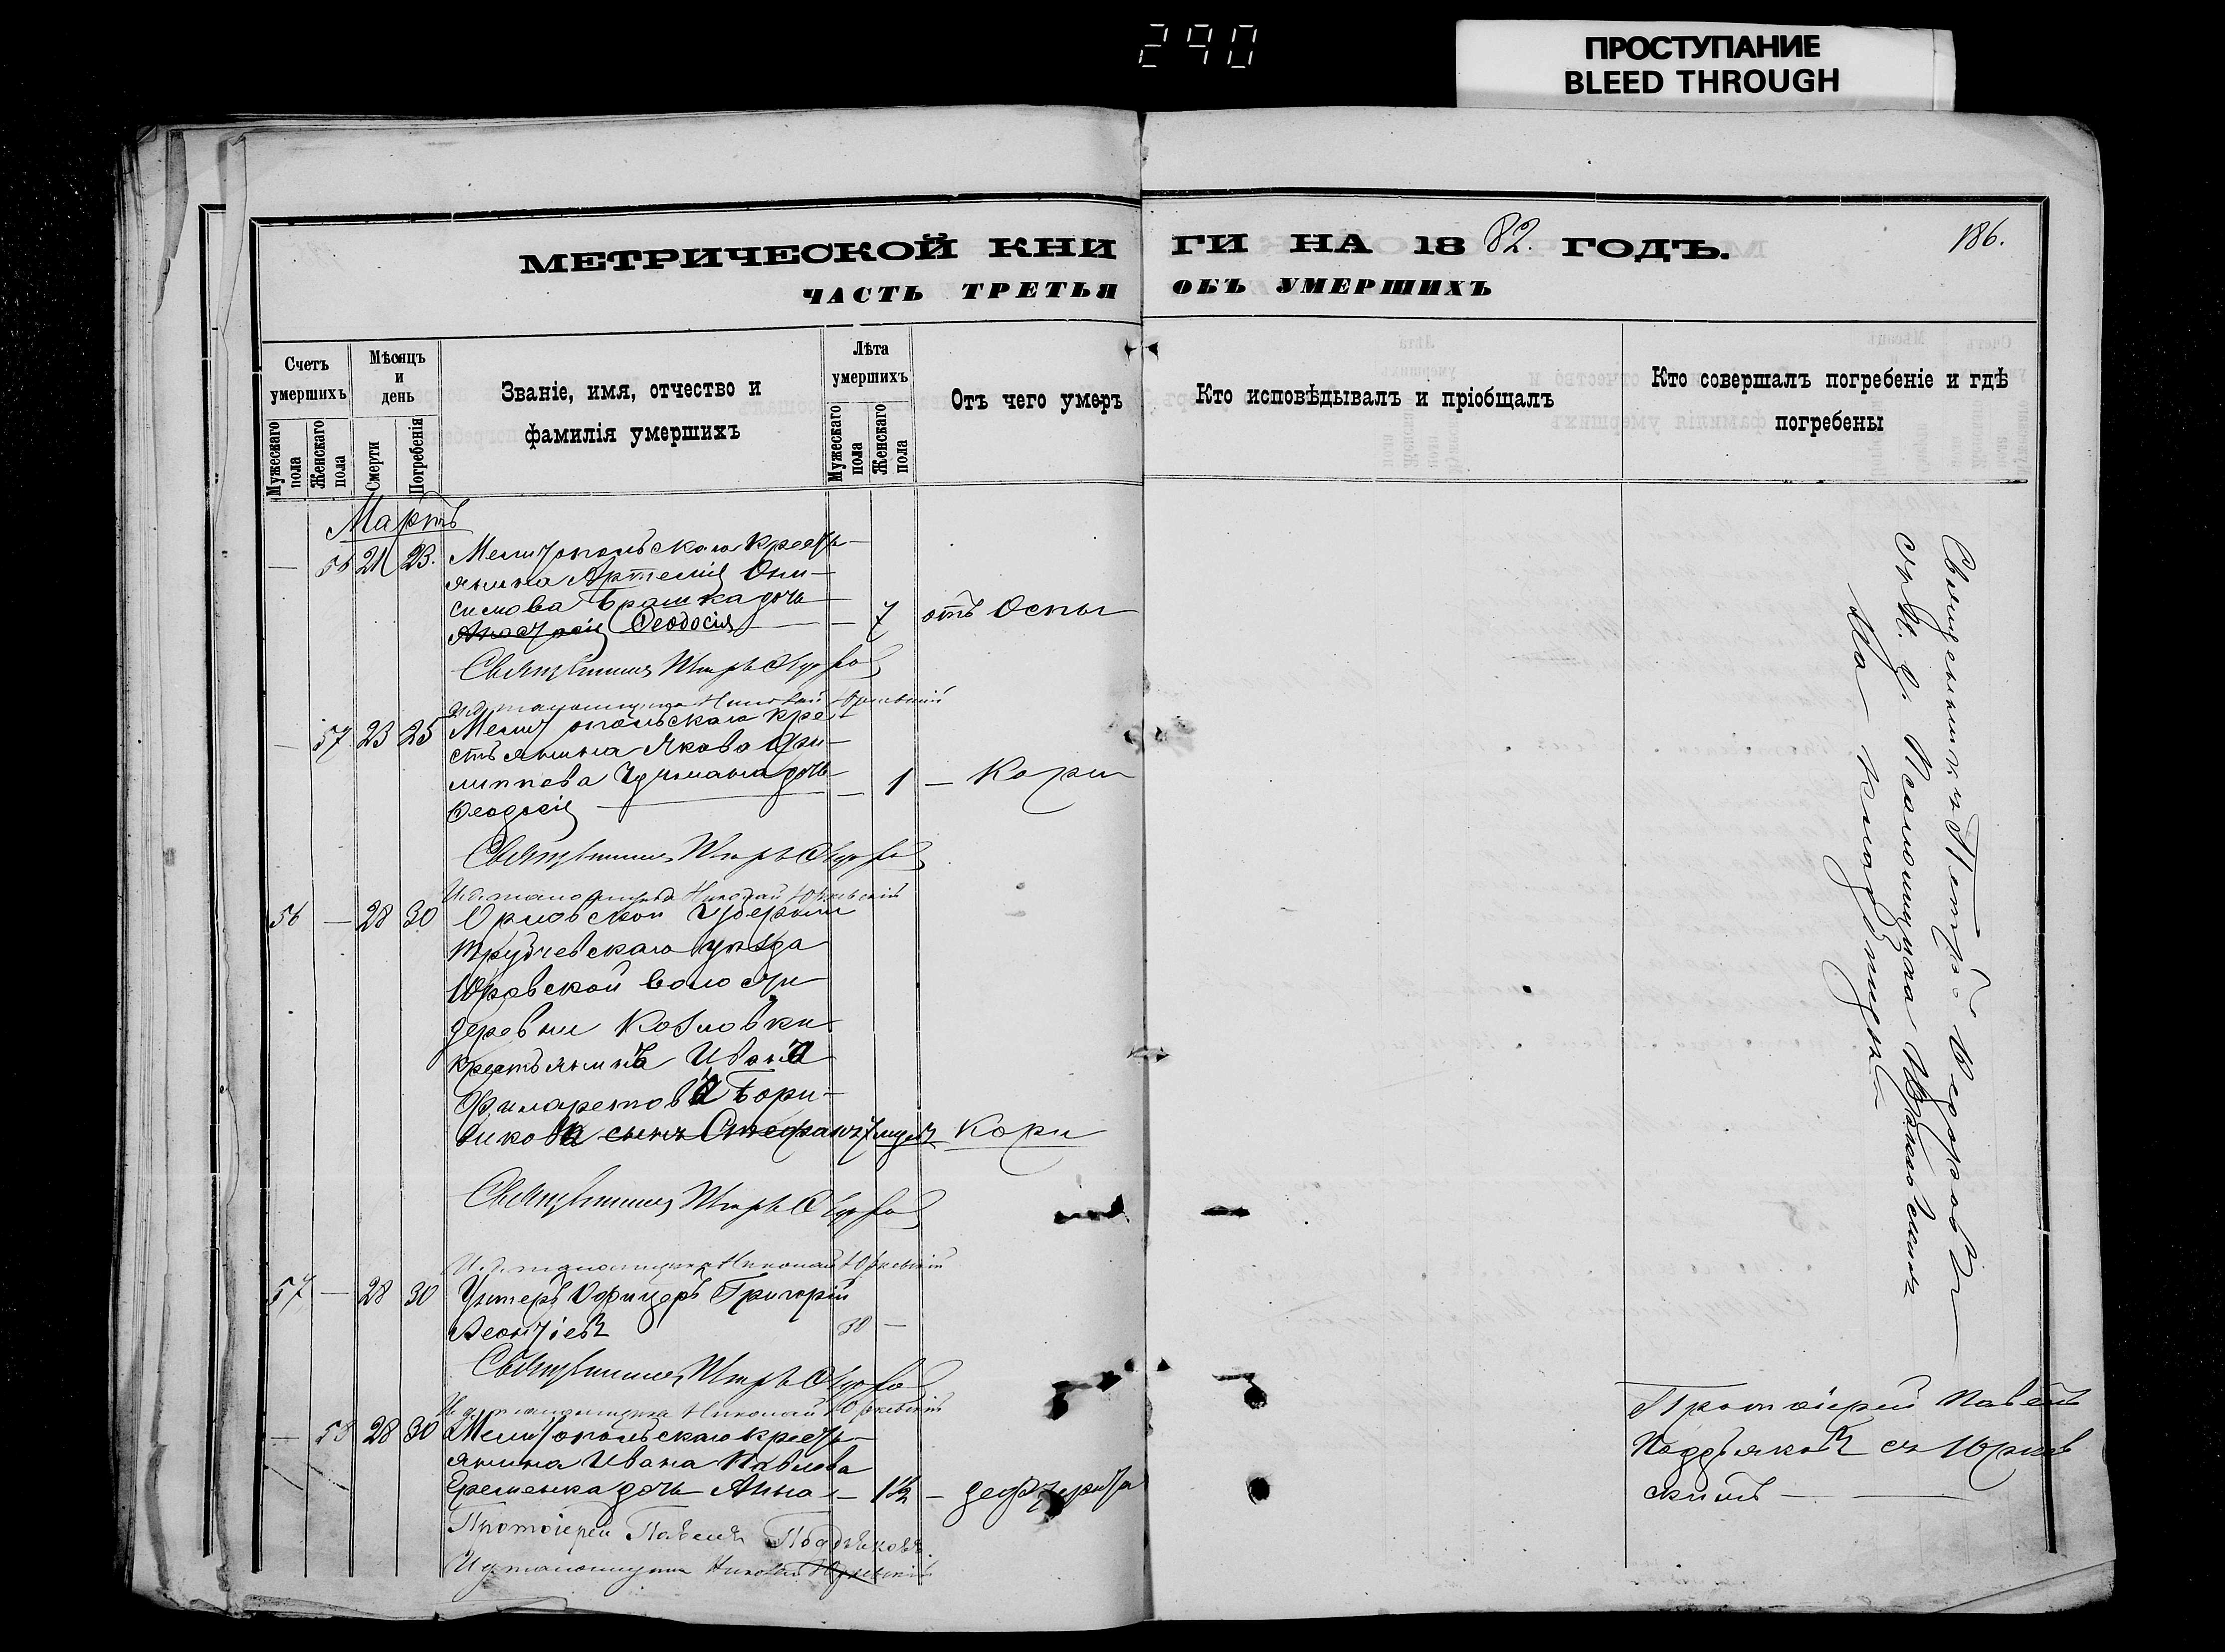 290
ПРОСТУПАНИЕ
BLEED THROUGH
МЕТРИЧЕСКОЙ КНИГИ НА 1882 ГОДЪ.
186.
ЧАСТЬ ТРЕТЬЯ ОБЪ УМЕРШИХЪ
Счетъ умершихъ
Мужескаго пола
Женскаго пола
Мѣсяцъ и день
Смерти
Погребенія
Званіе, имя, отчество и
фамилія умершихъ
Лѣта умершихъ
Мужескаго пола
Женскаго пола
Отъ чего умеръ
Кто исповѣдывалъ и пріобщалъ
Кто совершалъ погребеніе и гдѣ
погребены
Мартъ
— 56 21 23. Мелитопольскаго кресть-
янина Артемія Они-
симова Брашка дочь
Ѳеодосія — 7 отъ Оспы
Священникъ Петръ
Николай Юркевскій
— 57 23 25 Мелитопольскаго кре-
стьянина Якова Фи-
липпова дочь — 1 — Кори
Ѳеодосія
Священникъ Петръ
И. д. псаломщика Николай Юркевскій
56 — 28 30 Орловской Губерніи
Трубчевскаго уѣзда
Юровской волости
деревни Козловки
крестьянина Ивана
Филаретова Бори-
сынъ Стефанъ 7 Кори
Священникъ Петръ
И. д. псаломщика Николай Юркевскій
57 — 28 30 Унтеръ Офицеръ Григорій
Леонтіевъ 38 —
Священникъ Петръ
И. д. псаломщика Николай Юркевскій
— 58 28 30 Мелитопольскаго кресть-
янина Ивана Павлова
Еременка дочь Анна — 1½ — дефтерита
Протоіерей Павелъ Поддьяковъ
И. д. псаломщика Николай Юркевскій
Священникъ Петръ
съ и. д. Псаломщика Юркевскимъ
На кладбищѣ
Протоіерей Павелъ
Поддьяковъ съ Юркев
скимъ —